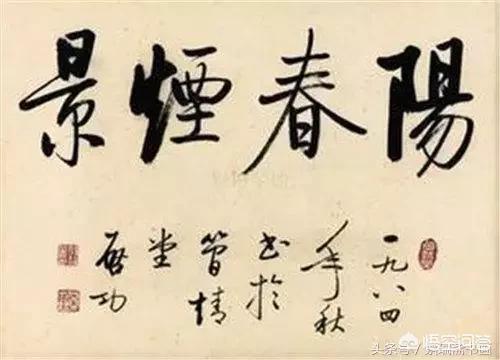 陽春煙景
一九八四
年秋
書於
簡靖
堂
啟功
悟空问答